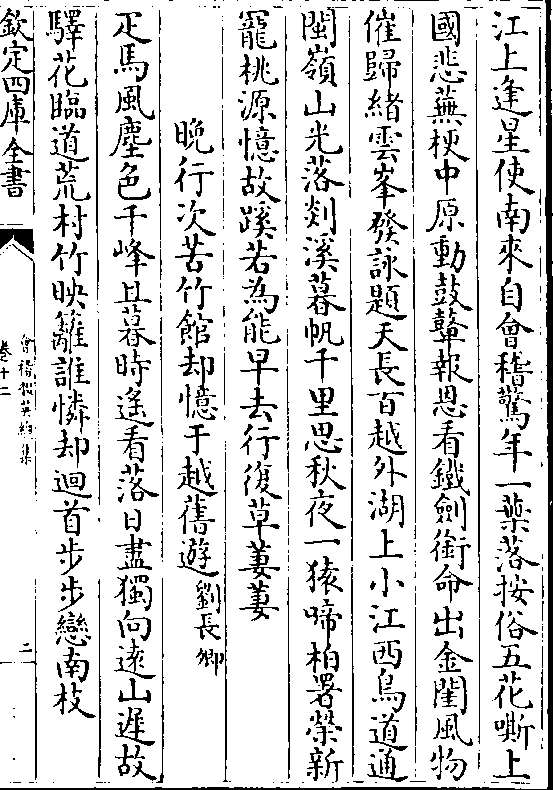 江上逢星使南來自會稽驚年一葉落按俗五花嘶上
國悲蕪梗中原動鼓鼙報恩看鐵劍銜命出金閨風物
催歸緒雲峯發詠題天長百越外湖上小江西鳥道通
閩嶺山光落剡溪暮帆千里思秋夜一猿啼柏署榮新
寵桃源憶故蹊若為能早去行復草萋萋
晚行次苦竹館却憶干越舊遊 劉長卿
疋馬風塵色千峰旦暮時遙看落日盡獨向遠山遲故
驛花臨道荒村竹映籬誰憐却迴首步步戀南枝
欽定四庫全書
會稽掇英總集
卷十二
二